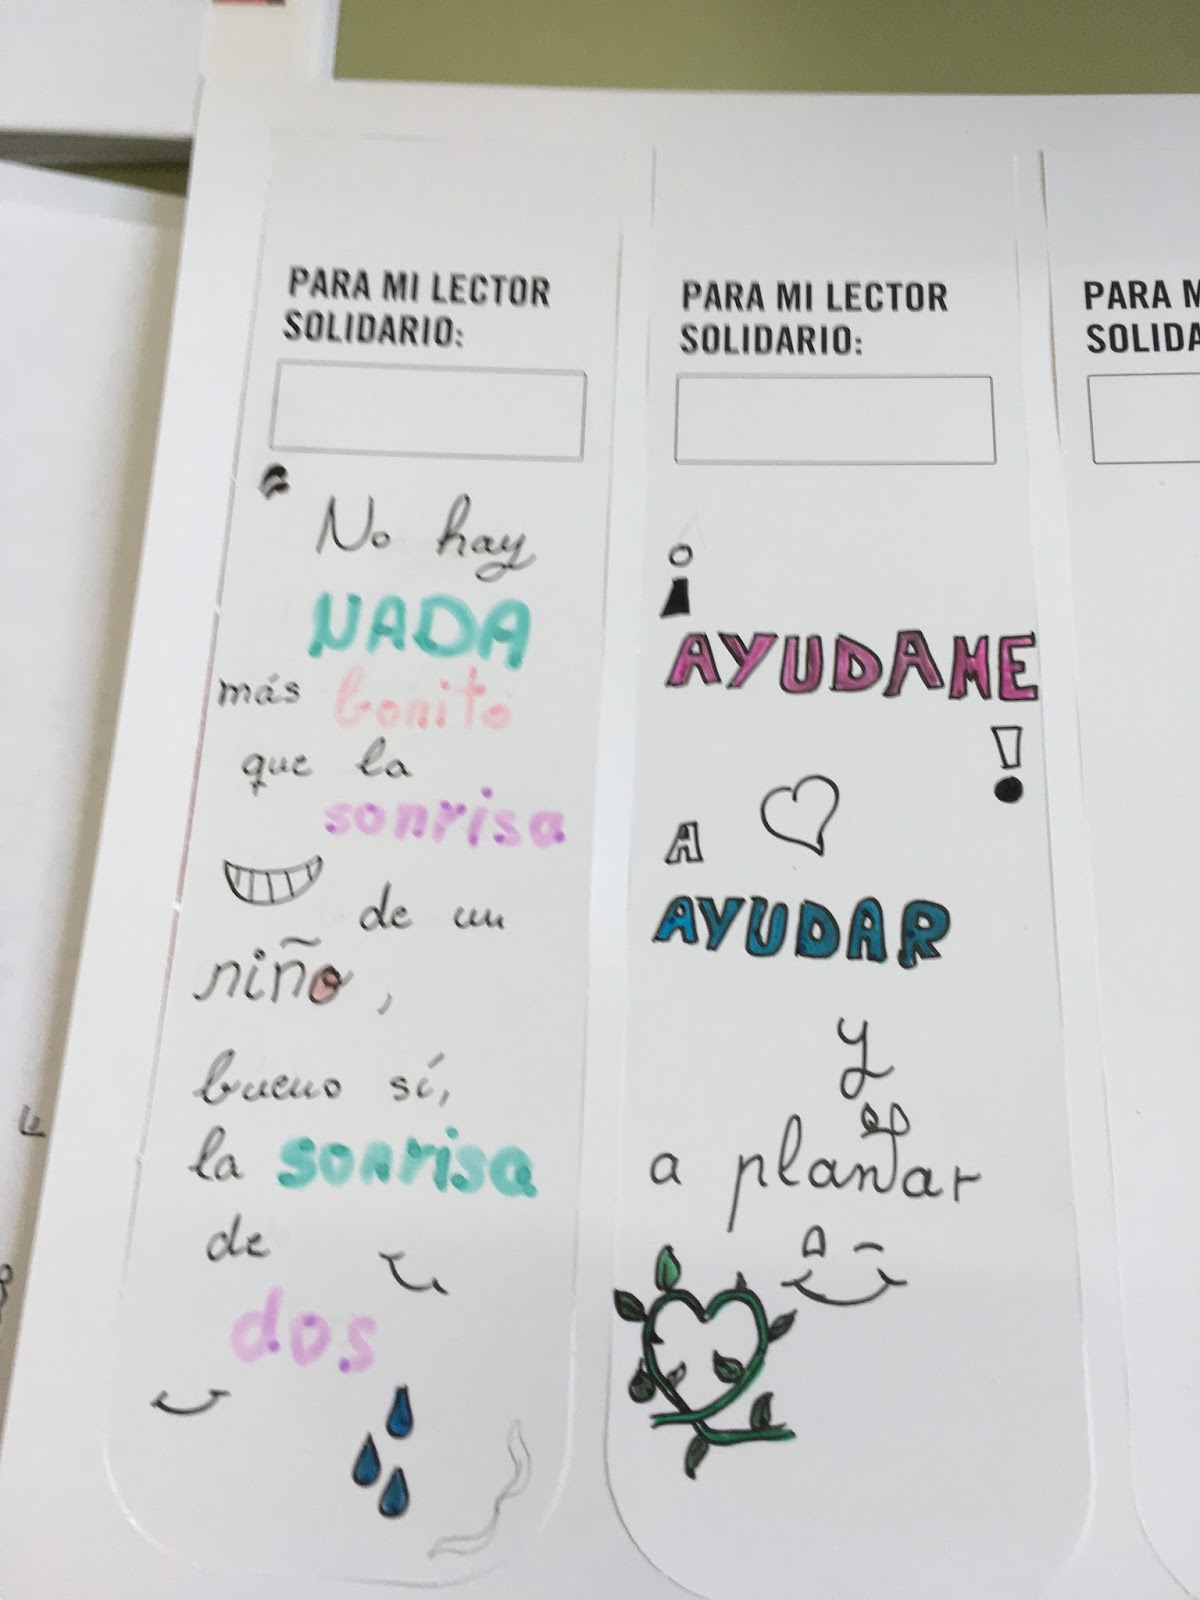 PARA MI LECTOR
SOLIDARIO:
No hay
NADA
más bonito
que la
sonrisa
de un
niño,
bueno sí,
la sonrisa
de
dos
PARA MI LECTOR
SOLIDARIO:
¡
AYUDAME
!
A
AYUDAR
y
a plantar
PARA M
SOLIDA